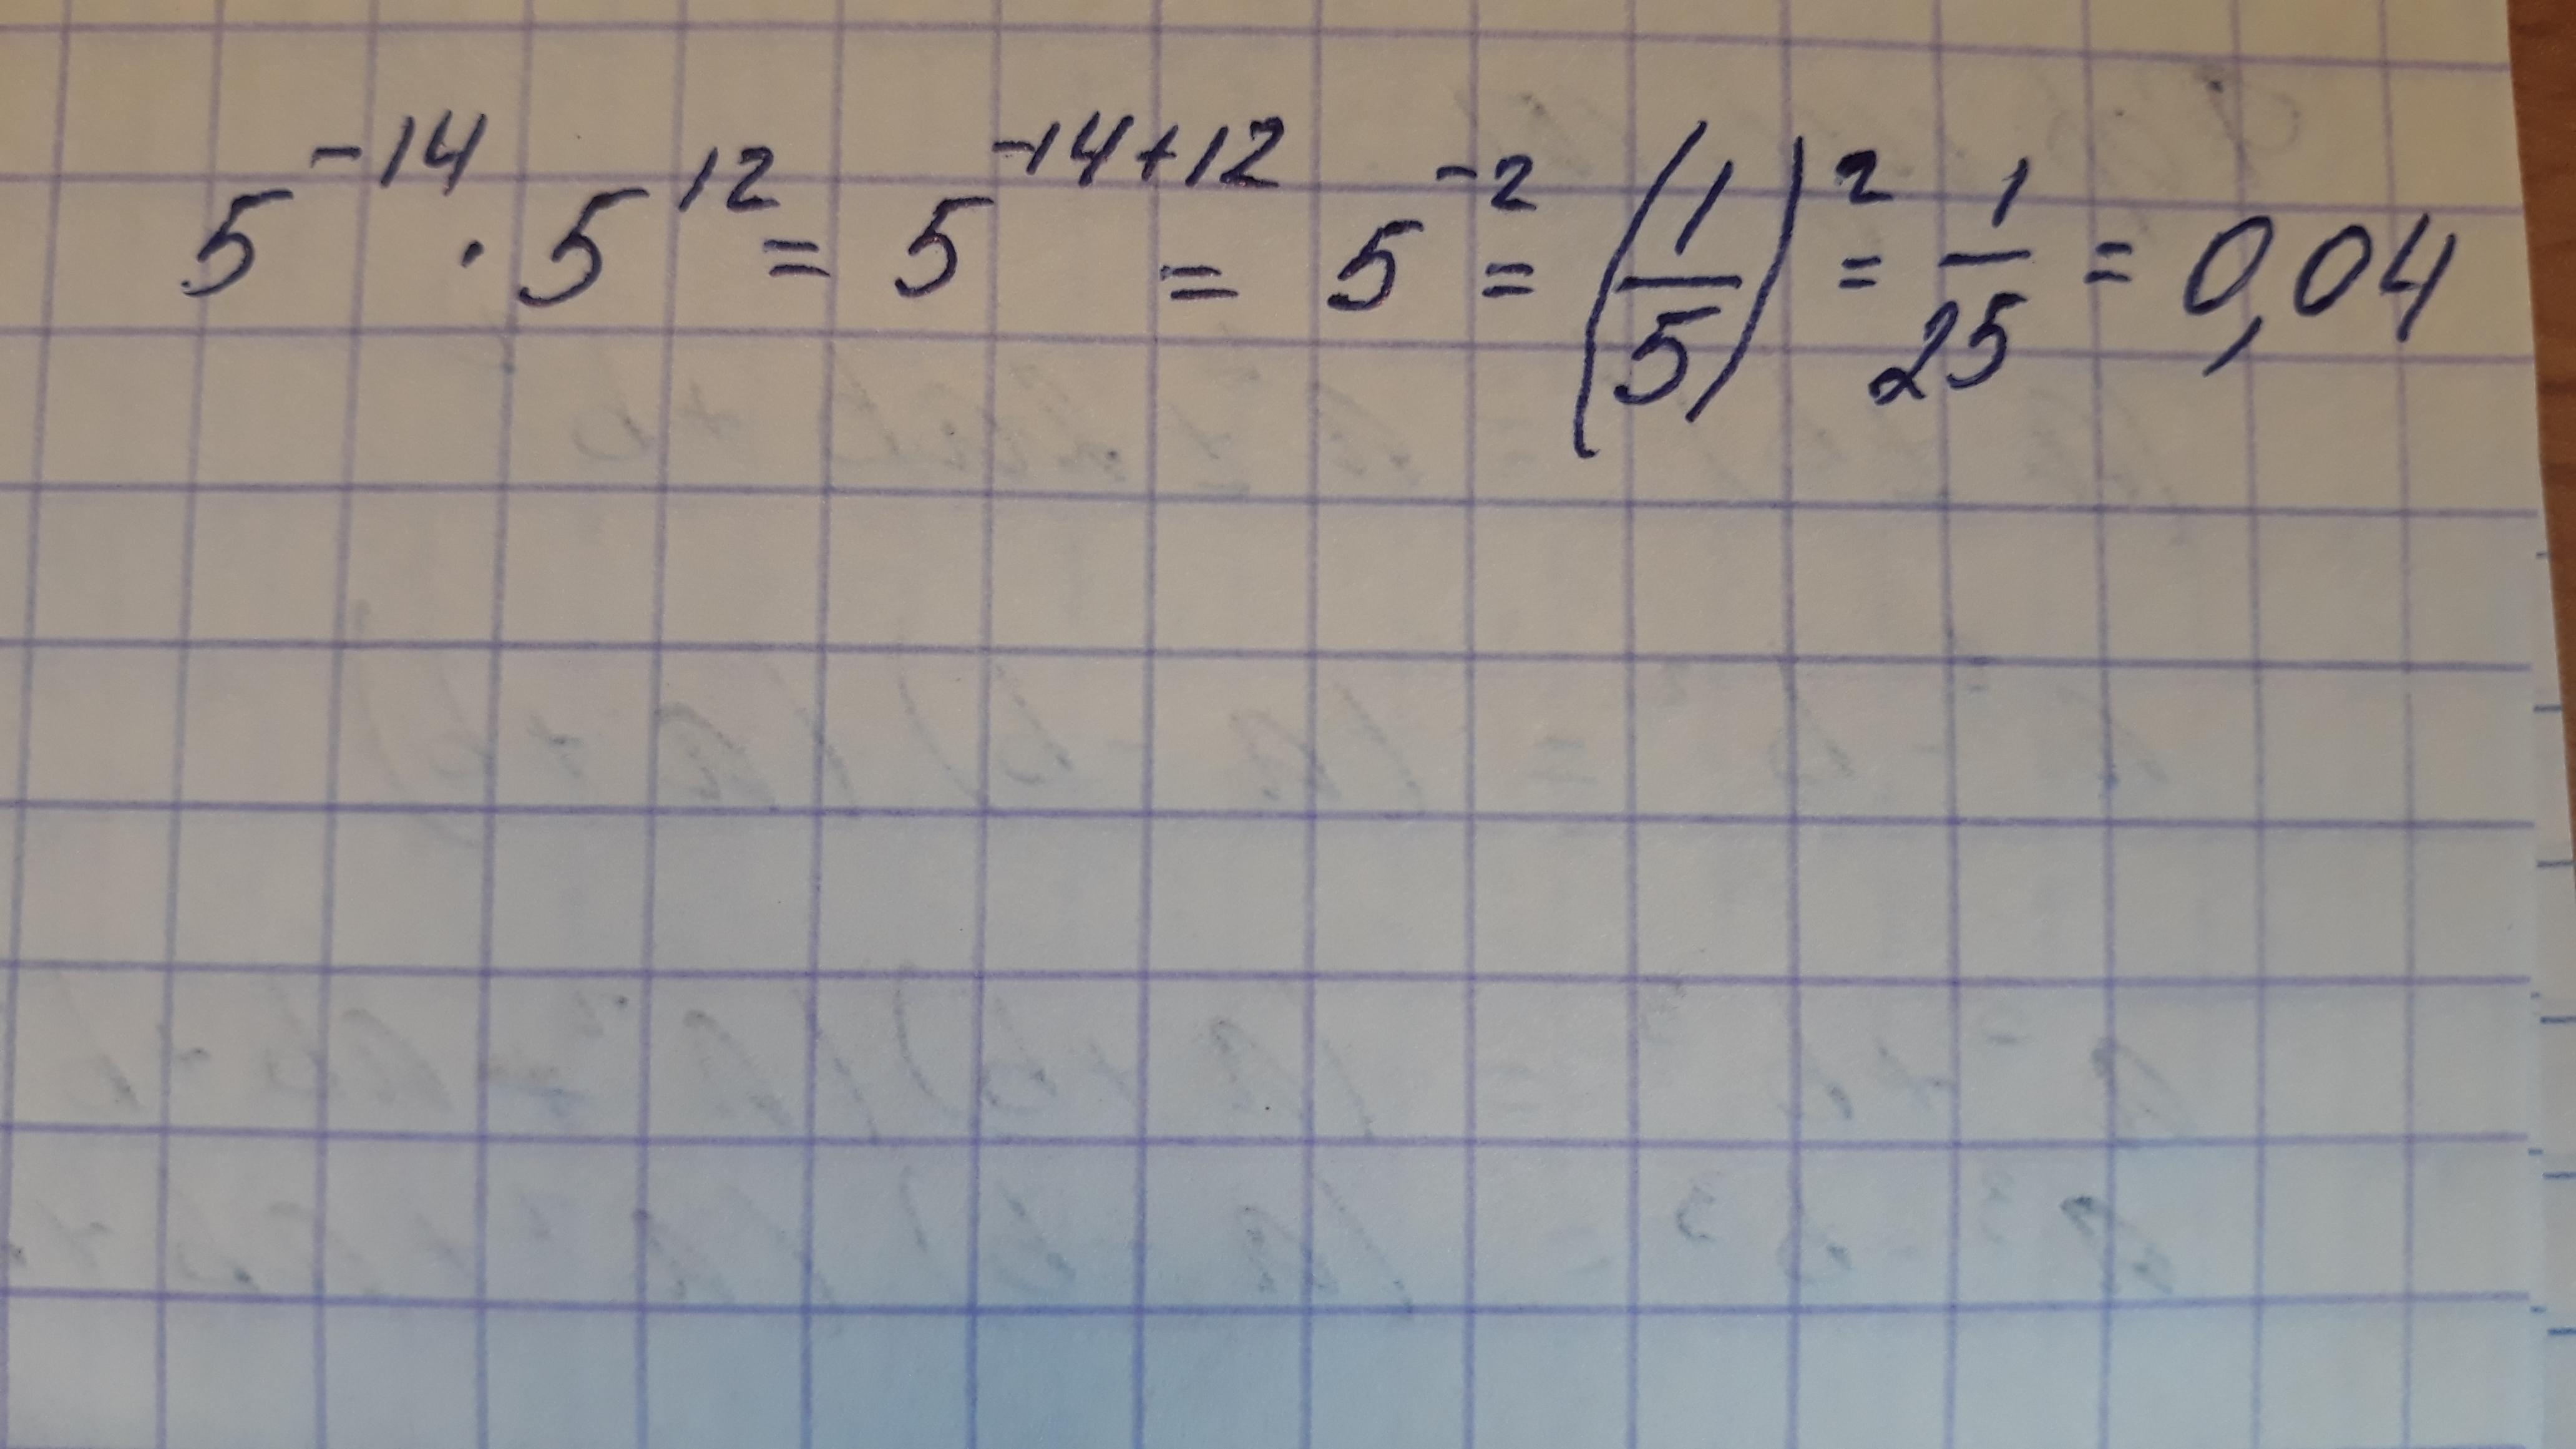 5⁻¹⁴ · 5¹² = 5⁻¹⁴⁺¹² = 5⁻² = (1/5)² = 1/25 = 0,04